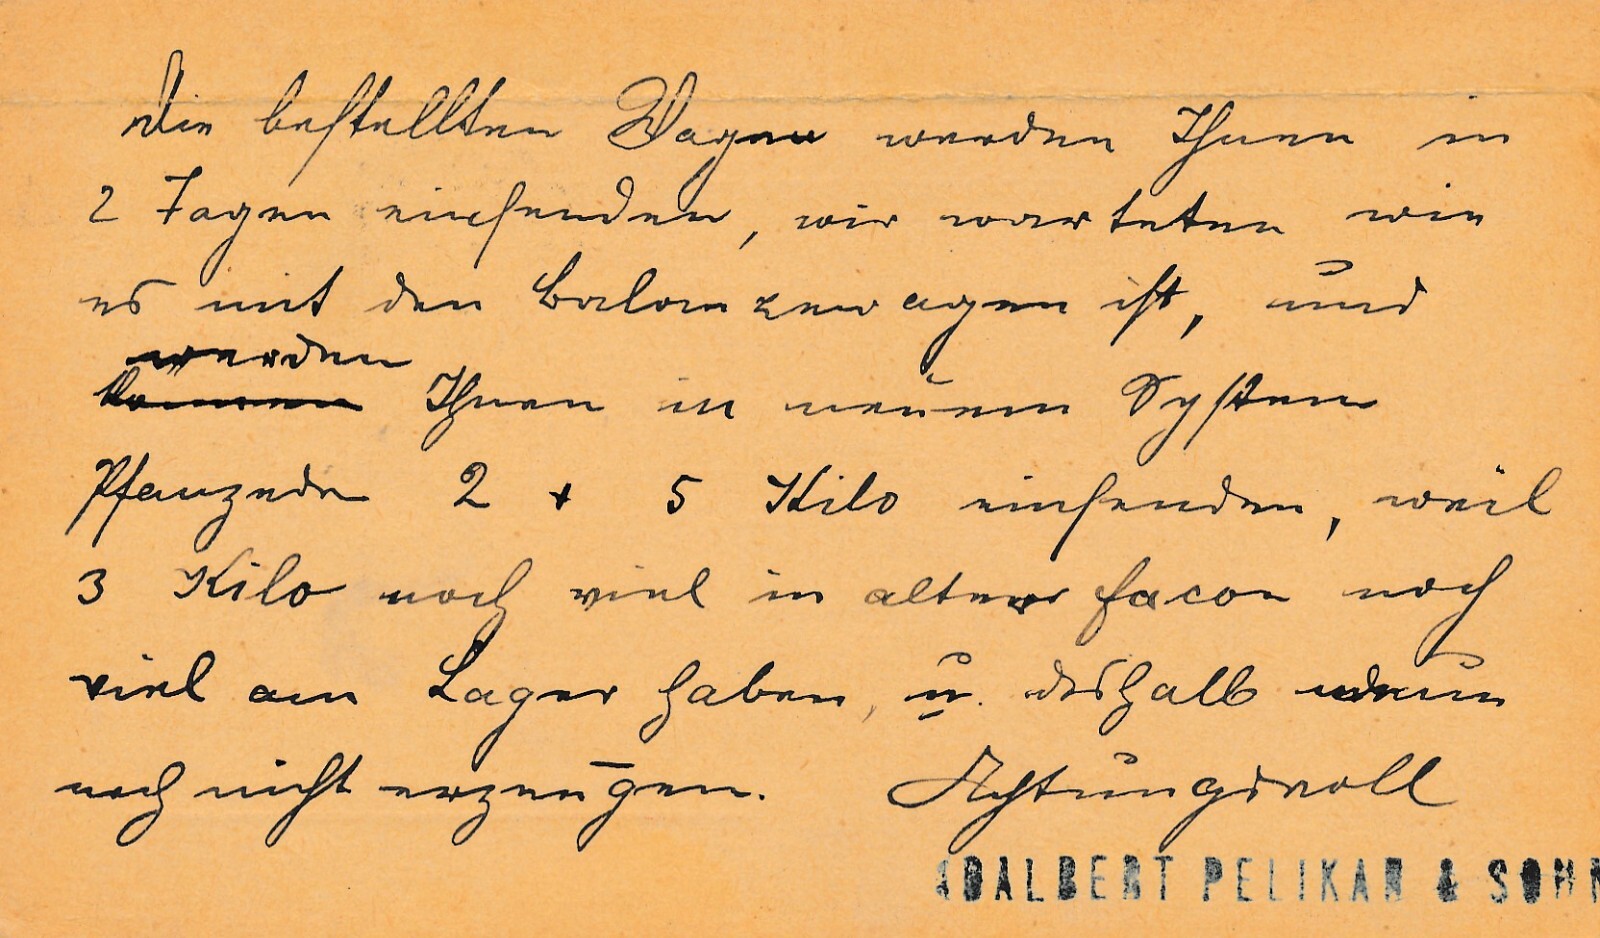 Die bestellten Wagen werden Ihnen in
2 Tagen einsenden, wir warteten wie
es mit den Balanzewagen ist, und
werden
können Ihnen in neuem System
Pfanzeder 2 + 5 Kilo einsenden, weil
3 Kilo noch viel in alter facon noch
viel am Lager haben, u. deshalb
noch nicht erzeugen. Achtungsvoll
ADALBERT PELIKAN & SOHN